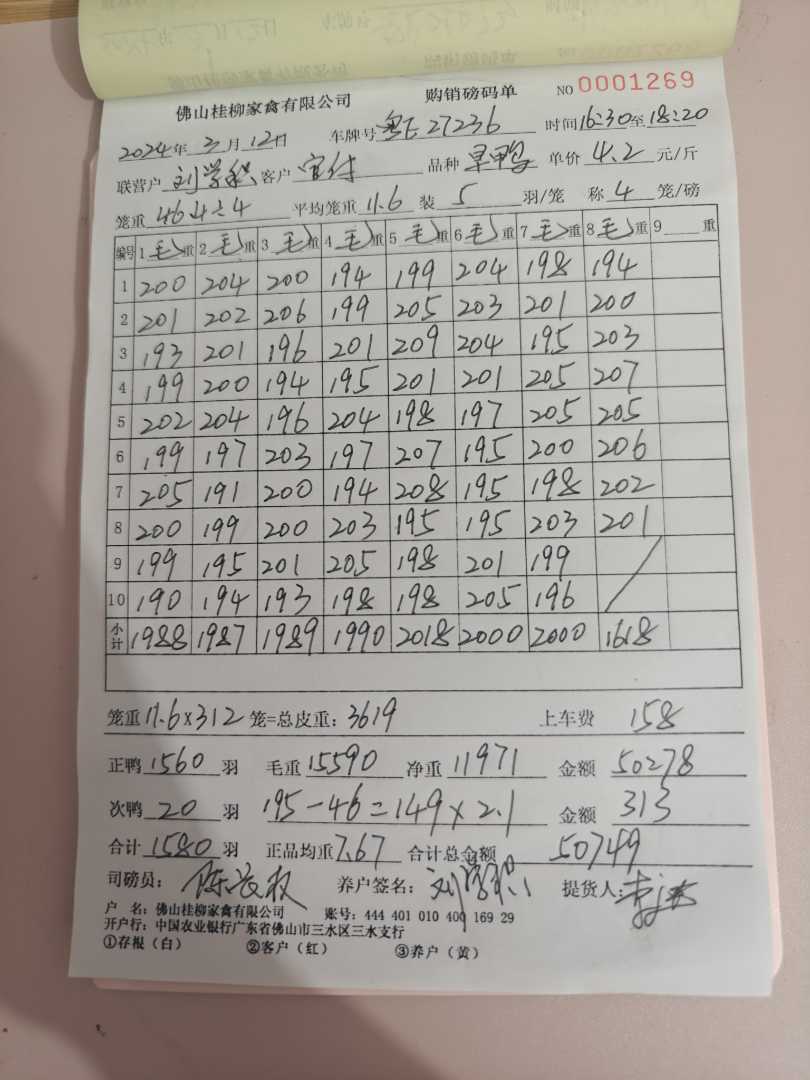 佛山桂柳家禽有限公司 购销磅码单 NO 0001269
2024年3月12日 车牌号 粤E27236 时间16:30至18:20
联营户 刘学积 客户 品种 旱鸭 单价 4.2 元/斤
笼重 46.4÷4 平均笼重 11.6 装 5 羽/笼 称 4 笼/磅
编号 1 毛重 2 毛重 3 毛重 4 毛重 5 毛重 6 毛重 7 毛重 8 毛重 9 重
1 200 204 200 194 199 204 198 194
2 201 202 206 199 205 203 201 200
3 193 201 196 201 209 204 195 203
4 199 200 194 195 201 201 205 207
5 202 204 196 204 198 197 205 205
6 199 197 203 197 207 195 200 206
7 205 191 200 194 208 195 198 202
8 200 199 200 203 195 195 203 201
9 199 195 201 205 198 201 199
10 190 194 193 198 198 205 196
小计 1988 1987 1989 1990 2018 2000 2000 1618
笼重 11.6×312 笼=总皮重: 3619 上车费 158
正鸭 1560 羽 毛重 15590 净重 11971 金额 50278
次鸭 20 羽 195-46=149×2.1 金额 313
合计 1580 羽 正品均重 7.67 合计总金额 50749
司磅员: 养户签名: 刘学积 提货人:
户 名: 佛山桂柳家禽有限公司 账号: 444 401 010 400 169 29
开户行: 中国农业银行广东省佛山市三水区三水支行
①存根(白) ②客户(红) ③养户(黄)